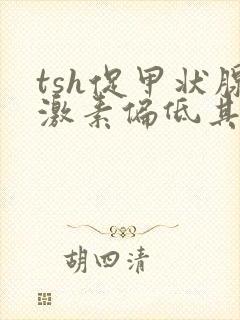 tsh促甲状腺
激素偏低其
胡四清